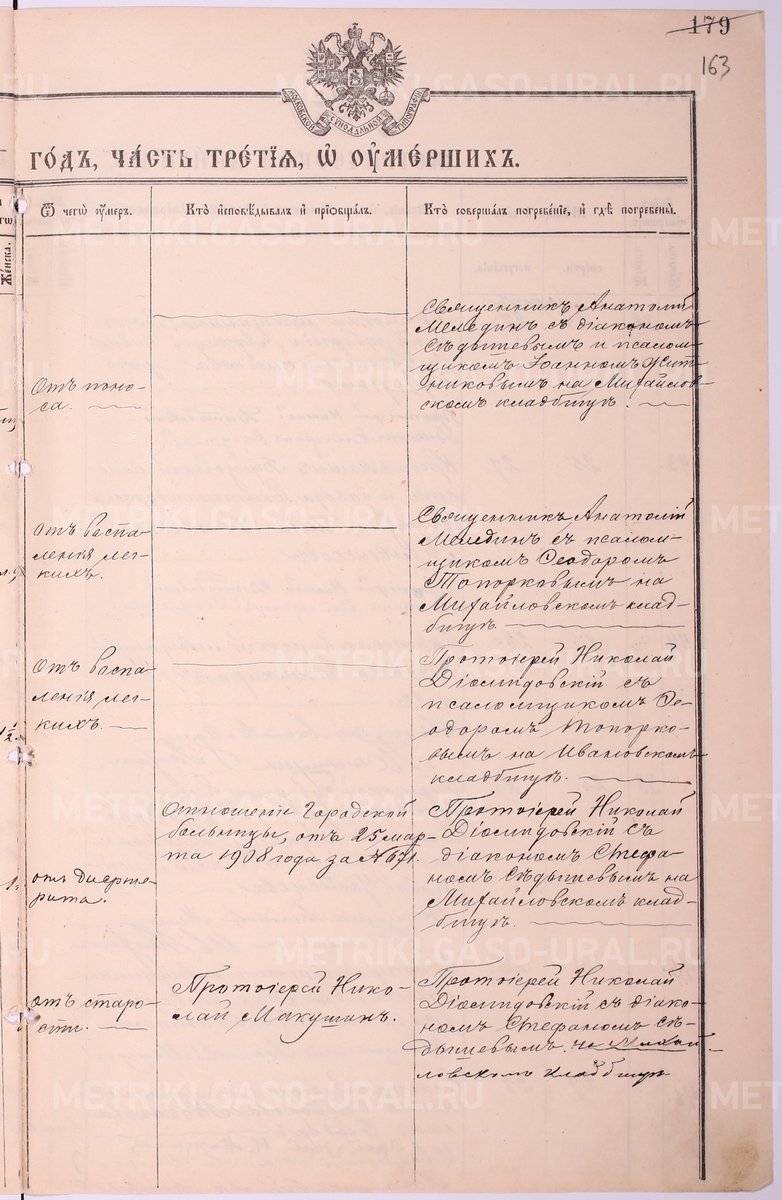 179
163
МОСКОВСКОЙ СѴНОДАЛЬНОЙ ТИПОГРАФІИ
ГО́ДЪ, ЧА́СТЬ ТРЕ́ТІѦ, Ѡ҆ ОУ҆МЕ́РШИХЪ.
Ѿ чегѡ̀ оу҆́меръ.
Кто̀ и҆сповѣ́дывалъ и҆ приѡбща́лъ.
Кто̀ соверша́лъ погребе́нїе, и҆ гдѣ̀ погребены̀.
Же́нска.
Отъ поно-
са.
Священникъ Анатолій
Мелединъ съ діакономъ
Сѣдышевымъ и псалом-
щикомъ Іоанномъ Жит-
никовымъ на Михайлов-
скомъ кладбищѣ.
отъ воспа-
ленія лег-
кихъ.
Священникъ Анатолій
Мелединъ съ псалом-
щикомъ Ѳеодоромъ
Топорковымъ на
Михайловскомъ клад-
бищѣ.
Отъ воспа-
ленія лег-
кихъ.
Протоіерей Николай
Діомидовскій съ
псаломщикомъ Ѳе-
одоромъ Топорко-
вымъ на Ивановскомъ
кладбищѣ.
отъ дифте-
рита.
Отношеніе Городской
больницы, отъ 25 мар-
та 1908 года за № 671.
Протоіерей Николай
Діомидовскій съ
діакономъ Стефа-
номъ Сѣдышевымъ на
Михайловскомъ клад-
бищѣ.
отъ старо-
сти.
Протоіерей Нико-
лай Макушинъ.
Протоіерей Николай
Діомидовскій съ діако-
номъ Стефаномъ Сѣ-
дышевымъ на Михай-
ловскомъ кладбищѣ
METRIKI.GASO-URAL.RU